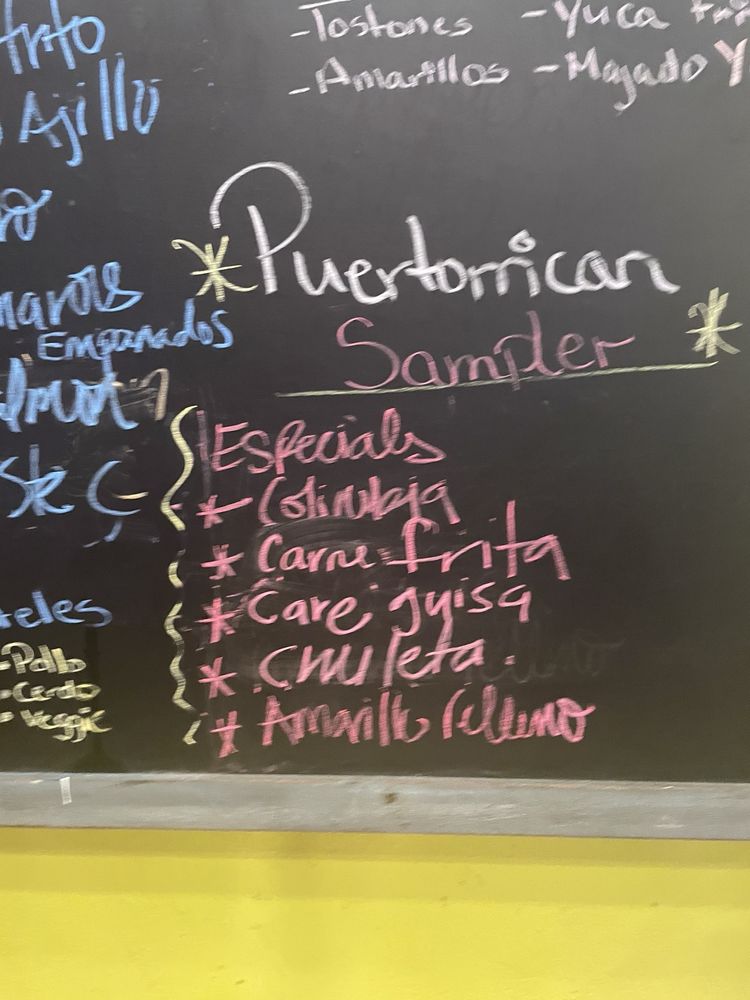 frito
Ajillo
Empanados
teles
-Pollo
-Cerdo
-Veggie
-Tostones -Yuca
-Amarillos -Mojado Y
*Puertorrican
Sampler *
Especials
*
* Carne frita
* Care guisa
* Chuleta
* Amarillo relleno